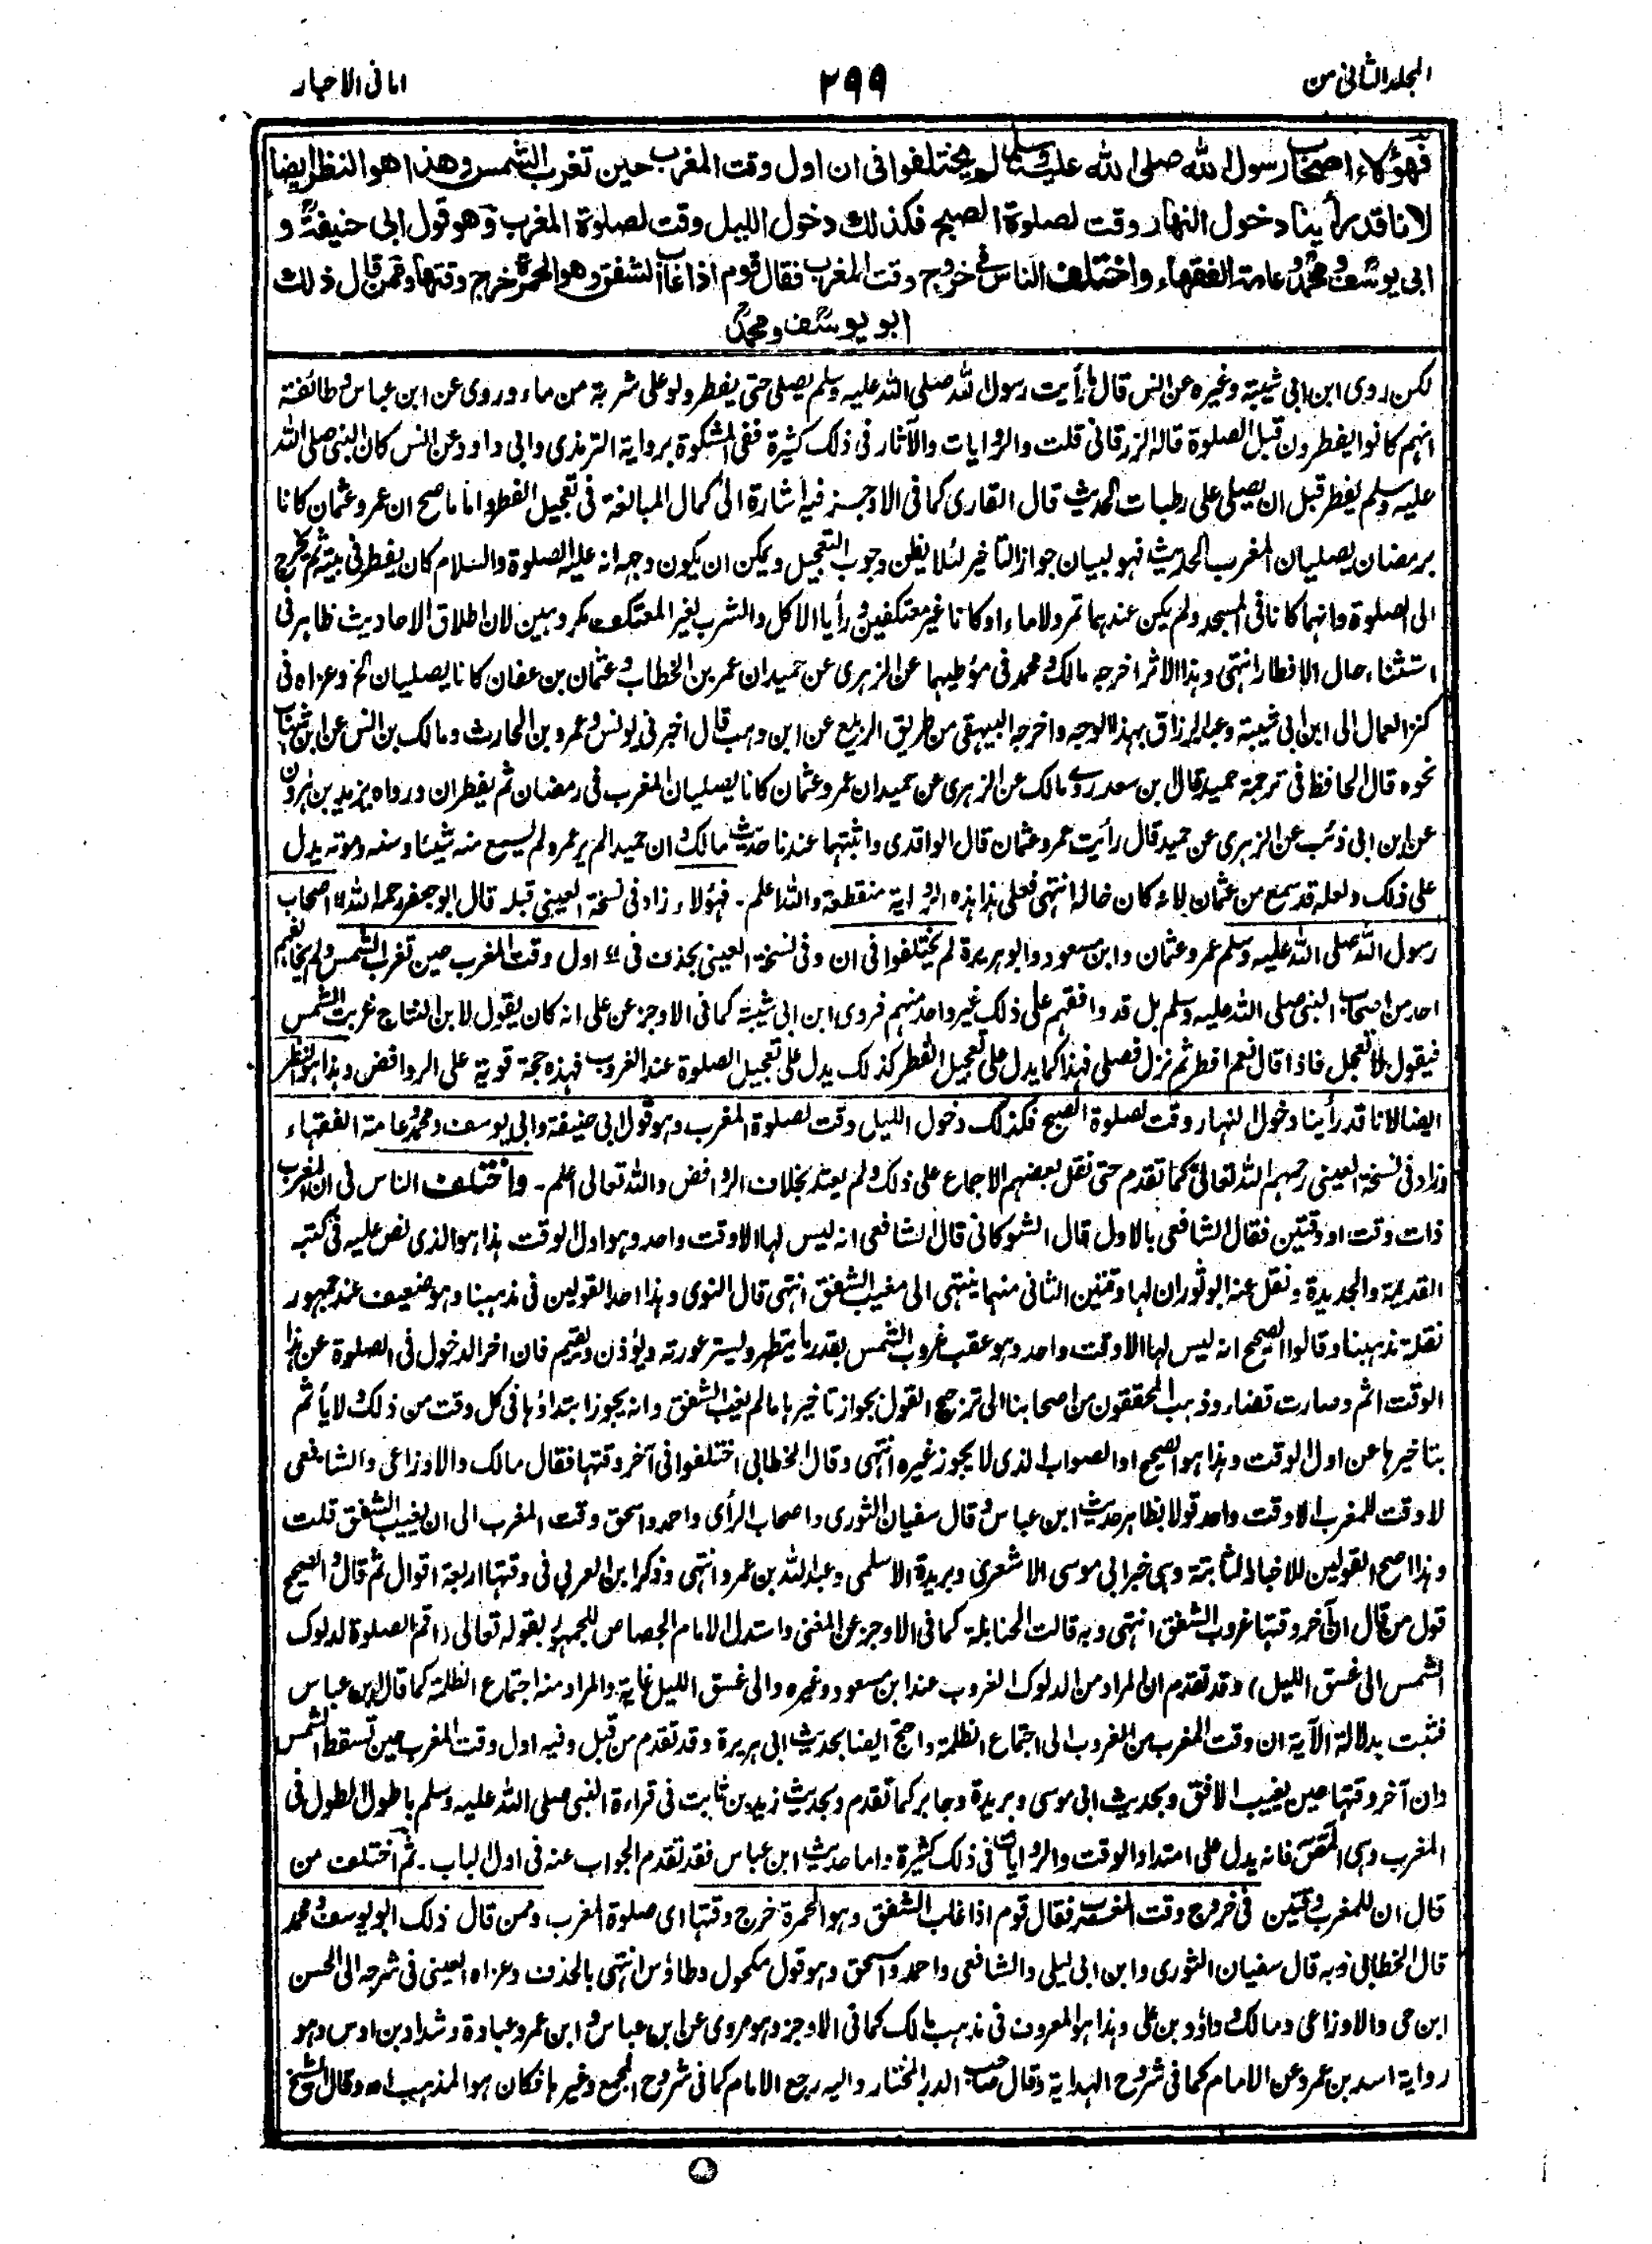 المجلد الثانى من
٢٩٩
امانى الاحبار
فهؤلاء اصحاب رسول الله صلى الله عليه وسلم لم يختلفوا فى ان اول وقت المغرب حين تغرب الشمس وهذا هو النظر ايضا
لانا قد رأينا دخول النهار وقت لصلوة الصبح فكذلك دخول الليل وقت لصلوة المغرب وهو قول ابى حنيفة و
ابى يوسف ومحمد وعامة الفقهاء واختلف الناس فى خروج وقت المغرب فقال قوم اذا غاب الشفق وهو الحمرة خرج وقتها وممن قال ذلك
ابو يوسف ومحمد
لكن روى ابن ابى شيبة وغيره عن انس قال ما رأيت رسول الله صلى الله عليه وسلم يصلى حتى يفطر ولو على شربة من ماء وروى عن ابن عباس وطائفة
انهم كانوا يفطرون قبل الصلوة قاله الزرقانى قلت والروايات والآثار فى ذلك كثيرة ففى المشكوة برواية الترمذى وابى داود عن انس كان النبى صلى الله
عليه وسلم يفطر قبل ان يصلى على رطبات الحديث قال القارى كما فى الاوجز فيه اشارة الى كمال المبالغة فى تعجيل الفطر واما ما صح ان عمر وعثمان كانا
برمضان يصليان المغرب الحديث فهو لبيان جواز التاخير لئلا يظن وجوب التعجيل ويمكن ان يكون وجهه انه عليه الصلوة والسلام كان يفطر فى بيته ثم يخرج
الى الصلوة وانهما كانا فى المسجد ولم يكن عندهما تمر ولا ماء او كانا غير معتكفين ورأيا الاكل والشرب لغير المعتكف مكروهين لان اطلاق الاحاديث ظاهر فى
استثناء حال الافطار انتهى وهذا الاثر اخرجه مالك ومحمد فى مؤطيهما عن الزهرى عن حميد ان عمر بن الخطاب وعثمان بن عفان كانا يصليان الخ وعزاه فى
كنز العمال الى ابن ابى شيبة وعبد الرزاق بهذا الوجه واخرجه البيهقى من طريق الربيع عن ابن وهب قال اخبرنى يونس وعمرو بن الحارث ومالك بن انس عن ابن شهاب
نحوه قال الحافظ فى ترجمة حميد قال بن سعد روى مالك عن الزهرى عن حميد ان عمر وعثمان كانا يصليان المغرب فى رمضان ثم يفطران ورواه يزيد بن هرون
عن ابن ابى ذئب عن الزهرى عن حميد قال رأيت عمر وعثمان قال الواقدى واثبتهما عندنا حديث مالك وان حميدا لم ير عمر ولم يسمع منه شيئا وسنه وموته يدل
على ذلك ولعله قد سمع من عثمان لانه كان خاله انتهى فعلى هذا هذه الرواية منقطعة والله اعلم ۔ فهؤلاء زاد فى نسخة العينى قبله قال ابو جعفر رحمه الله اصحاب
رسول الله صلى الله عليه وسلم عمر وعثمان وابن مسعود وابو هريرة لم يختلفوا فى ان وفى نسخة العينى بحذف فى اول وقت المغرب حين تغرب الشمس ولم يخالفهم
احد من اصحاب النبى صلى الله عليه وسلم بل قد وافقهم على ذلك غير واحد منهم فروى ابن ابى شيبة كما فى الاوجز عن على انه كان يقول لابن النتاج غربت الشمس
فيقول لا تعجل فاذا قال نعم افطر ثم نزل فصلى فهذا كما يدل على تعجيل الفطر كذلك يدل على تعجيل الصلوة عند الغروب فهذه حجة قوية على الروافض وهذا هو النظر
ايضا لانا قد رأينا دخول النهار وقت لصلوة الصبح فكذلك دخول الليل وقت لصلوة المغرب وهو قول ابى حنيفة وابى يوسف ومحمد وعامة الفقهاء
وزاد فى نسخة العينى رحمهم الله تعالى كما تقدم حتى نقل بعضهم الاجماع على ذلك ولم يعتد بخلاف الروافض والله تعالى اعلم ۔ واختلف الناس فى ان المغرب
ذات وقت او وقتين فقال الشافعى بالاول قال الشوكانى قال الشافعى انه ليس لها الا وقت واحد وهو اول الوقت هذا هو الذى نص عليه فى كتبه
القديمة والجديدة ونقل عنه ابو ثور ان لها وقتين الثانى منهما ينتهى الى مغيب الشفق انتهى قال النوى وهذا احد القولين فى مذهبنا وهو ضعيف عند جمهور
نقلة مذهبنا وقالوا الصحيح انه ليس لها الا وقت واحد وهو عقب غروب الشمس بقدر ما يتطهر ويستر عورته ويؤذن ويقيم فان اخر الدخول فى الصلوة عن هذا
الوقت اثم وصارت قضاء وذهب المحققون من اصحابنا الى ترجيح القول بجواز تاخيرها ما لم يغيب الشفق وانه يجوز ابتداؤها فى كل وقت من ذلك ولا يأثم
بتاخيرها عن اول الوقت وهذا هو الصحيح او الصواب الذى لا يجوز غيره انتهى وقال الخطابى اختلفوا فى آخر وقتها فقال مالك والاوزاعى والشافعى
لا وقت للمغرب الا وقت واحد قولا بظاهر حديث ابن عباس وقال سفيان الثورى واصحاب الرأى واحمد واسحق وقت المغرب الى ان يغيب الشفق قلت
وهذا اصح القولين للاخبار الثابتة وهى خبر ابى موسى الاشعرى وبريدة الاسلمى وعبد الله بن عمرو انتهى وذكر ابن العربى فى وقتها اربعة اقوال ثم قال والصحيح
قول من قال ان آخر وقتها غروب الشفق انتهى وبه قالت الحنابلة كما فى الاوجز عن المغنى واستدل الامام الجصاص للجمهور بقوله تعالى (اقم الصلوة لدلوك
الشمس الى غسق الليل) وقد تقدم ان المراد من الدلوك الغروب عند ابن مسعود وغيره والى غسق الليل غاية والمراد منه اجتماع الظلمة كما قال ابن عباس
فثبت بدلالة الآية ان وقت المغرب من الغروب الى اجتماع الظلمة واحتج ايضا بحديث ابى هريرة وقد تقدم من قبل وفيه اول وقت المغرب حين تسقط الشمس
وان آخر وقتها حين يغيب الافق وبحديث ابى موسى وبريدة وجابر كما تقدم وبحديث زيد بن ثابت فى قراءة النبى صلى الله عليه وسلم باطول الطول فى
المغرب وهى المص فانه يدل على امتداد الوقت والروايات فى ذلك كثيرة واما حديث ابن عباس فقد تقدم الجواب عنه فى اول الباب ۔ ثم اختلف من
قال ان للمغرب وقتين فى خروج وقت المغرب فقال قوم اذا غاب الشفق وهو الحمرة خرج وقتها اى صلوة المغرب وممن قال ذلك ابو يوسف ومحمد
قال الخطابى وبه قال سفيان الثورى وابن ابى ليلى والشافعى واحمد واسحق وهو قول مكحول وطاؤس انتهى بالحذف وعزاه العينى فى شرحه الى الحسن
ابن حى والاوزاعى ومالك وداؤد بن على وهذا هو المعروف فى مذهب مالك كما فى الاوجز وهو مروى عن ابن عباس وابن عمر وعبادة وشداد بن اوس وهو
رواية اسد بن عمرو عن الامام كما فى شروح الهداية وقال صاحب الدر المختار واليه رجع الامام كما فى شروح المجمع وغيرها فكان هو المذهب اه وقال الشيخ